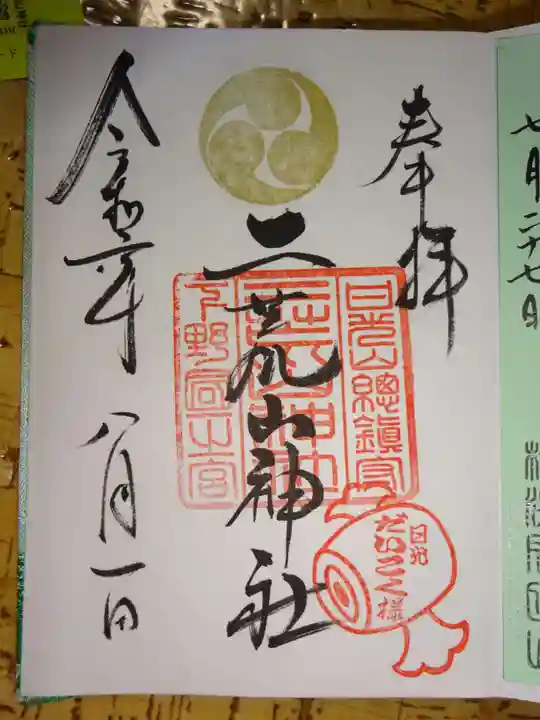 七月二十七日
奉拝
二荒山神社
日光山總鎮守
下野國一之宮
日光
だいこく様
令和二年
八月一日